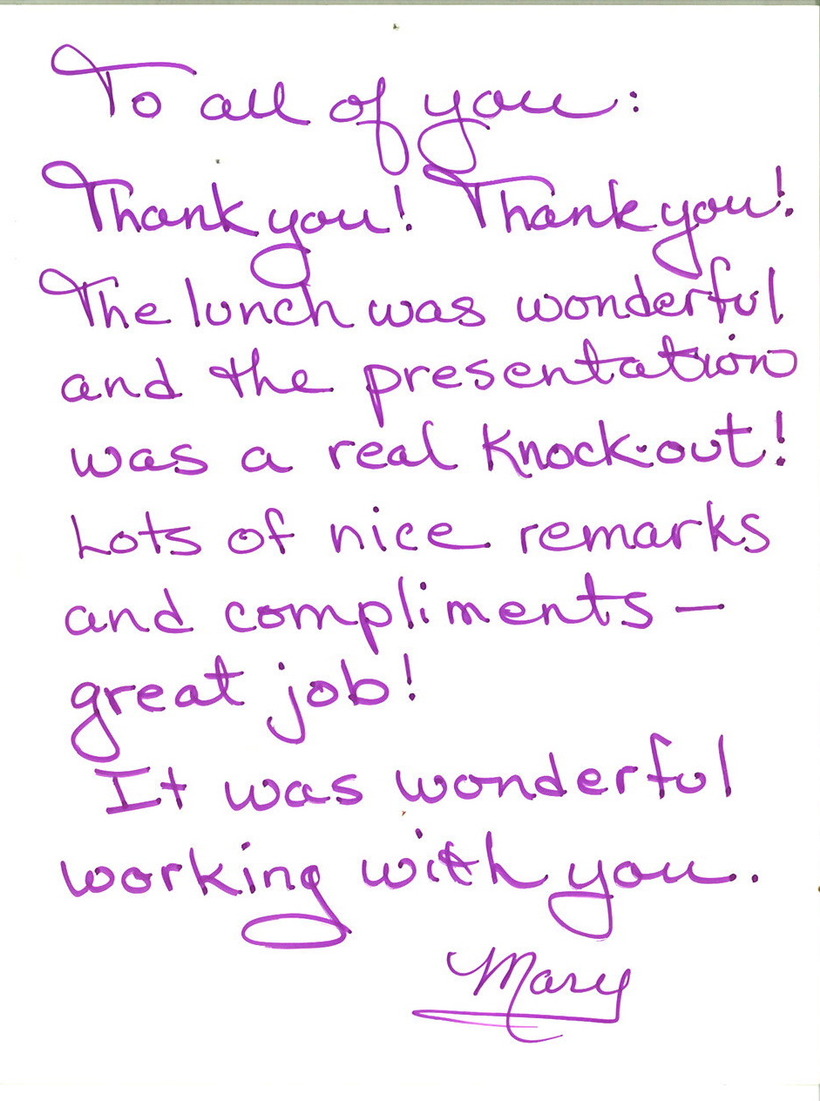 To all of you:
Thank you! Thank you!
The lunch was wonderful
and the presentation
was a real knock-out!
Lots of nice remarks
and compliments —
great job!
It was wonderful
working with you.
Mary